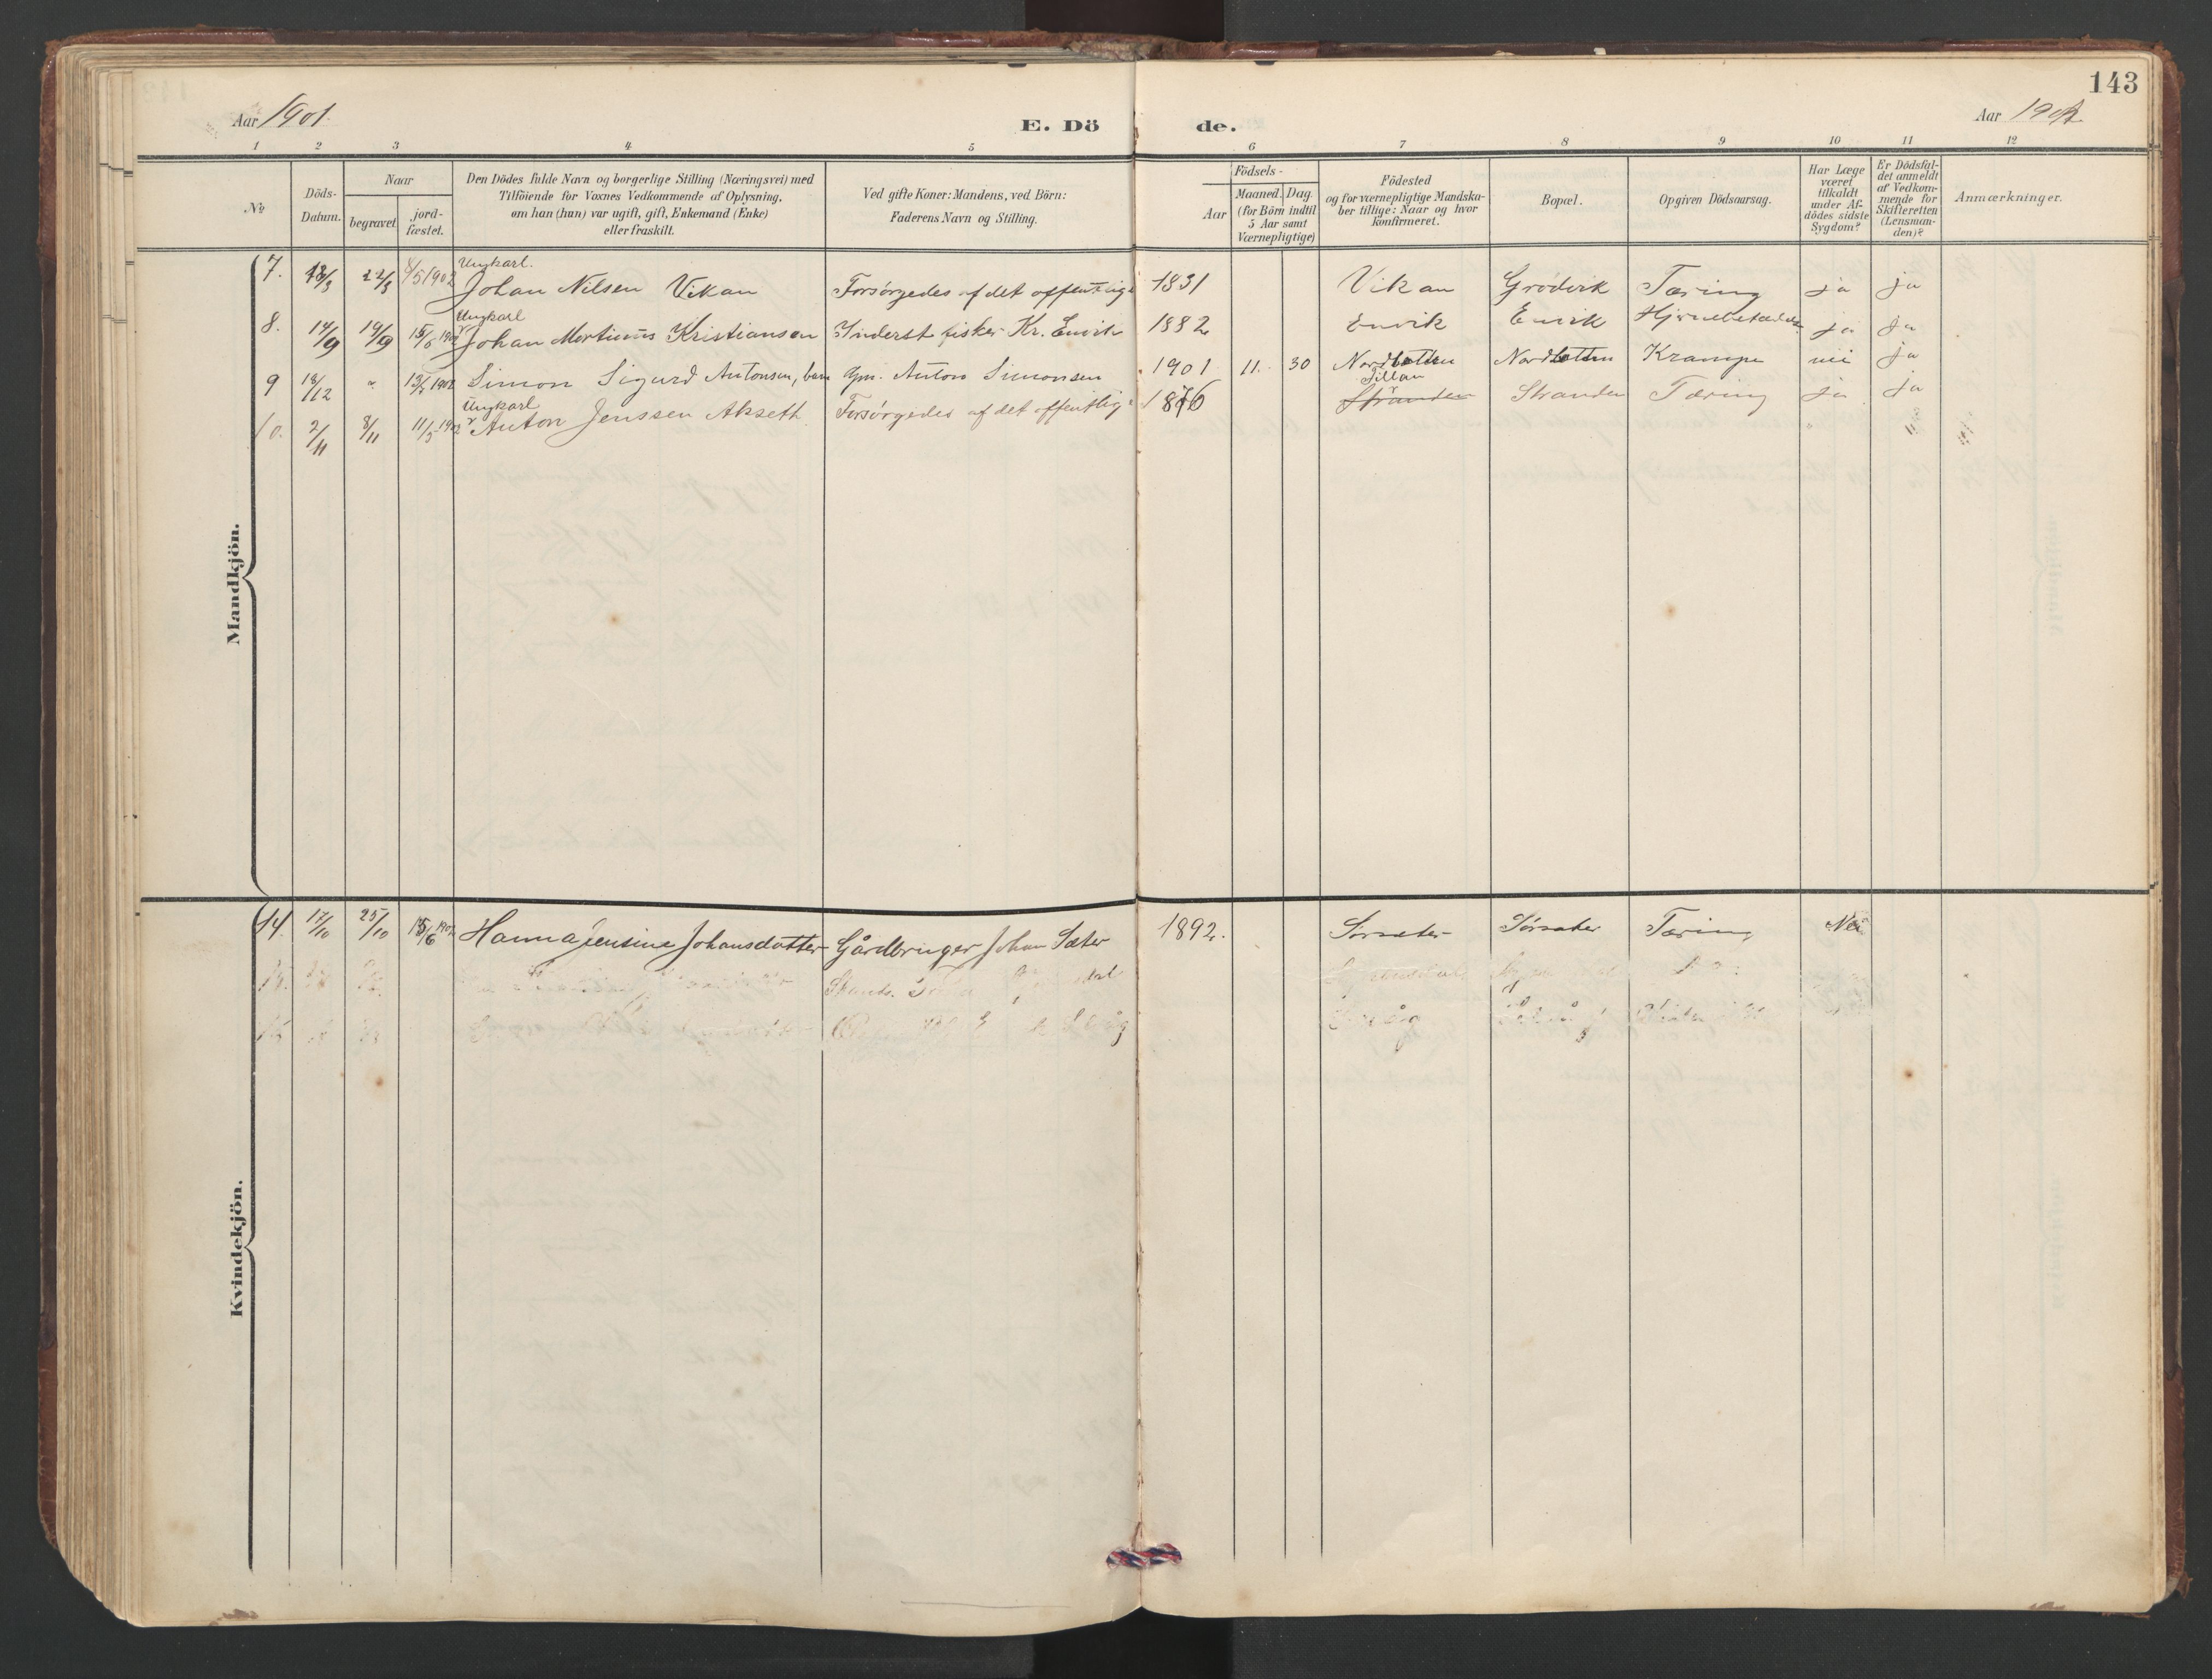 143
Aar 1901.
E. Dö
de.
Aar 1901
1 2 3 4 5 6 7 8 9 10 11 12
№
Döds-Datum.
Naar
begravet.
jord-fæstet.
Den Dödes fulde Navn og borgerlige Stilling (Næringsvei) med
Tilföiende for Voxnes Vedkommende af Oplysning,
om han (hun) var ugift, gift, Enkemand (Enke)
eller fraskilt.
Ved gifte Koner: Mandens, ved Börn:
Faderens Navn og Stilling.
Födsels-
Aar
Maaned. Dag
(for Börn indtil
5 Aar samt
Værnepligtige)
Födested
og for værnepligtige Mandska-
ber tillige: Naar og hvor
konfirmeret.
Bopæl.
Opgiven Dödsaarsag.
Har Læge
været
tilkaldt
under Af-
dödes sidste
Sygdom?
Er Dödsfal-
det anmeldt
af Vedkom-
mende for
Skifteretten
(Lensman-
den)?
Anmærkninger.
Mandkjön.
Ungkarl.
7. 18/3 22/3 8/5 1902 Johan Nilsen Vikan Forsørgedes af det offentlige 1831 Vikan Grødvik Tæring ja ja
Ungkarl
8. 14/9 19/9 15/6 1902 Johan Mortinus Kristiansen Inderst fisker Kr. Envik 1882 Envik Envik ja ja
9 18/12 " 13/7 1902 Simon Sigurd Antonsen, barn Gm. Anton Simonsen 1901 11. 30 Nordbotten Nordbotten Krampe nei ja
Ungkarl Tillan
10. 2/11 8/11 11/5 1902 Anton Jenssen Akseth Forsørgedes af det offentlige 1876 Stranden Stranden Tæring ja ja
Kvindekjön.
14. 17/10 25/10 15/6 1902 Hanna Jensine Johansdatter Gårdbruger Johan Sæter 1892. Sørsæter Sørsæter Tæring Nei